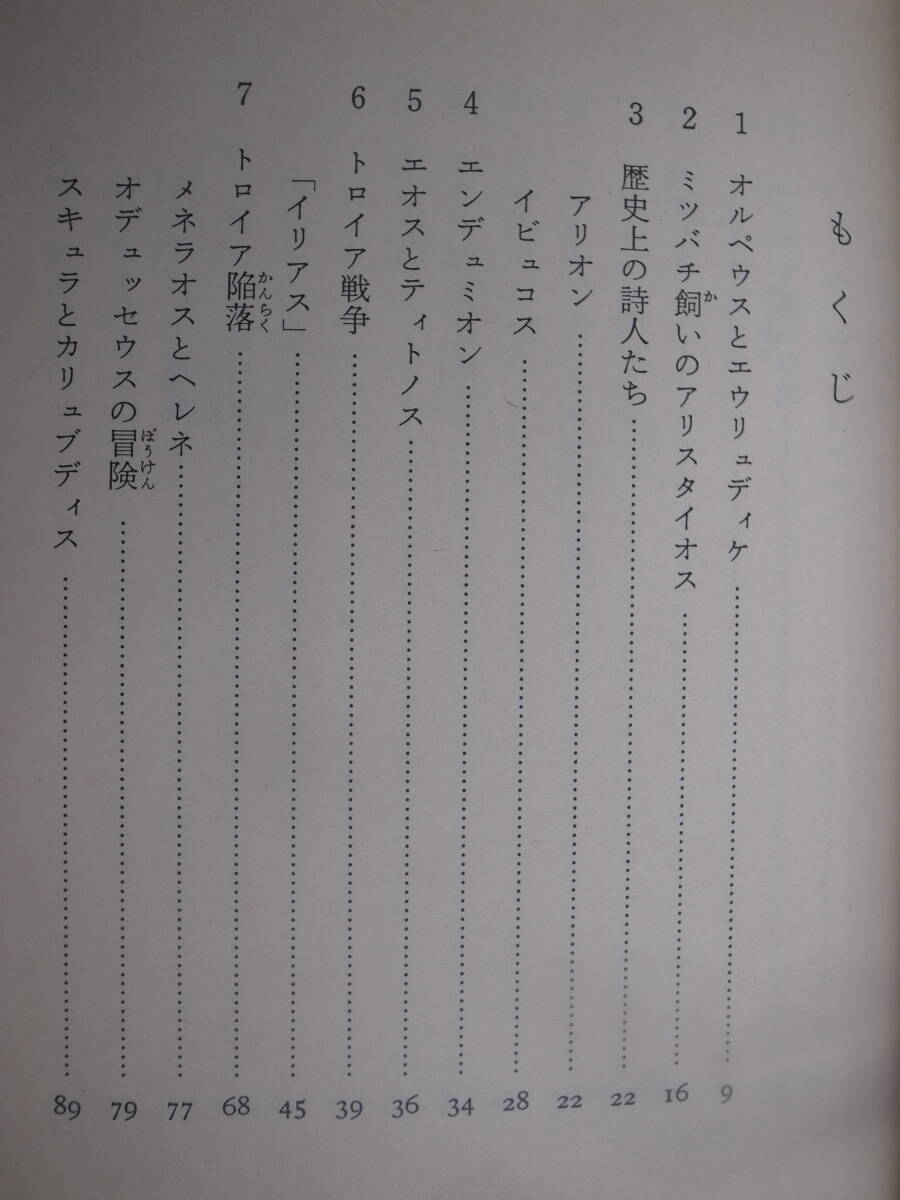 もくじ
1 オルペウスとエウリュディケ……………… 9
2 ミツバチ飼いのアリスタイオス……………… 16
3 歴史上の詩人たち……………… 22
アリオン……………… 22
イビュコス……………… 28
4 エンデュミオン……………… 34
5 エオスとティトノス……………… 36
6 トロイア戦争……………… 39
「イリアス」……………… 45
7 トロイア陥落……………… 68
メネラオスとヘレネ……………… 77
オデュッセウスの冒険……………… 79
スキュラとカリュブディス……………… 89